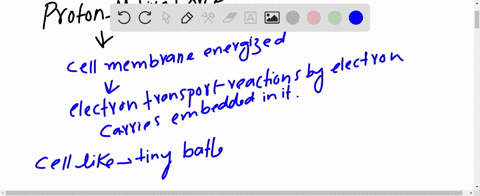 Proton-
cell membrane energized
electron transport-reactions by electron
carries embedded in it.
cell like → tiny batt